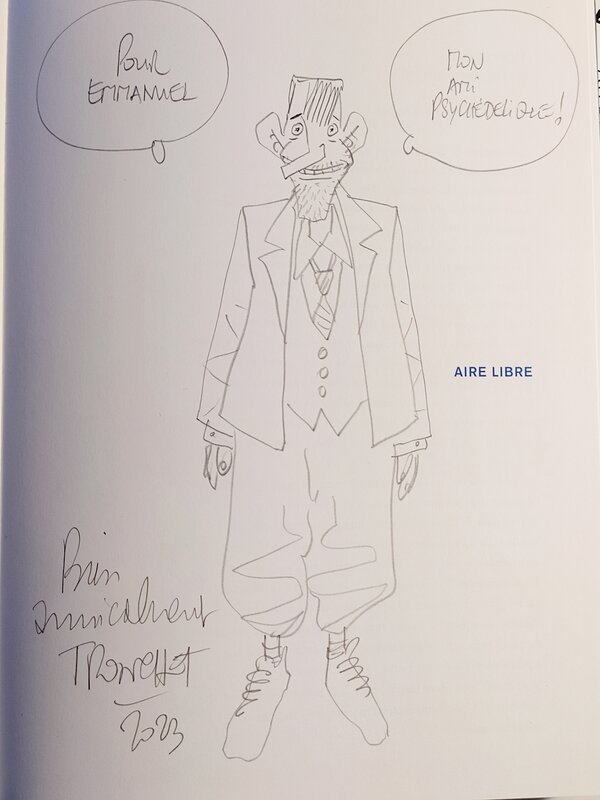 Pour
EMMANUEL
MON
AMI
PSYCHÉDELIQUE!
AIRE LIBRE
Bien
amicalement
TRONCHET
2023